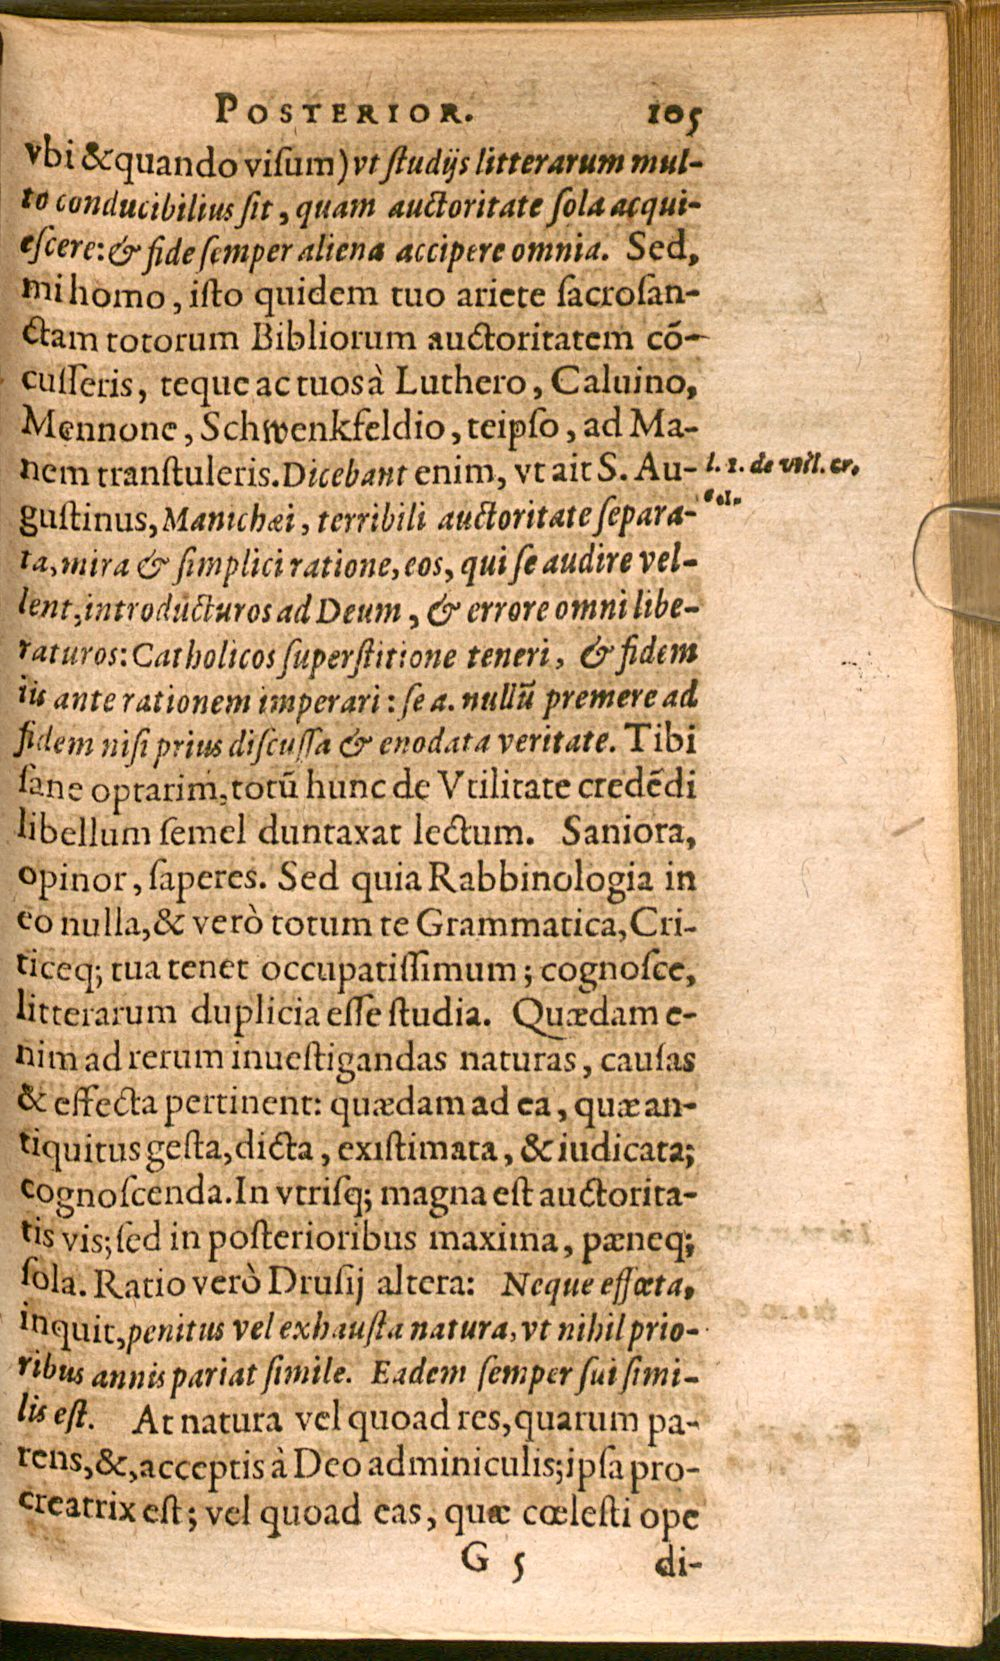 POSTERIOR. 105
vbi & quando visum) vt studijs litterarum mul-
to conducibilius sit, quam auctoritate sola acqui-
escere: & fide semper aliena accipere omnia. Sed,
mi homo, isto quidem tuo ariete sacrosan-
ctam totorum Bibliorum auctoritatem cõ-
cusseris, teque ac tuos à Luthero, Caluino,
Mennone, Schwenkfeldio, teipso, ad Ma-
nem transtuleris. Dicebant enim, vt ait S. Au-
l. 1. de vtil. cr.
gustinus, Manichæi, terribili auctoritate separa-
ta, mira & simplici ratione, eos, qui se audire vel-
lent, introducturos ad Deum, & errore omni libe-
raturos: Catholicos superstitione teneri, & fidem
iis ante rationem imperari: se a. nullũ premere ad
fidem nisi prius discussa & enodata veritate. Tibi
sane optarim, totũ hunc de Vtilitate credẽdi
libellum semel duntaxat lectum. Saniora,
opinor, saperes. Sed quia Rabbinologia in
eo nulla, & verò totum te Grammatica, Cri-
ticeq; tua tenet occupatissimum; cognosce,
litterarum duplicia esse studia. Quædam e-
nim ad rerum inuestigandas naturas, causas
& effecta pertinent: quædam ad ea, quæ an-
tiquitus gesta, dicta, existimata, & iudicata;
cognoscenda. In vtrisq; magna est auctorita-
tis vis; sed in posterioribus maxima, pæneq;
sola. Ratio verò Drusij altera: Neque effœta,
inquit, penitus vel exhausta natura, vt nihil prio-
ribus annis pariat simile. Eadem semper sui simi-
lis est. At natura vel quoad res, quarum pa-
rens, &, acceptis à Deo adminiculis; ipsa pro-
creatrix est; vel quoad eas, quæ cœlesti ope
G 5 di-